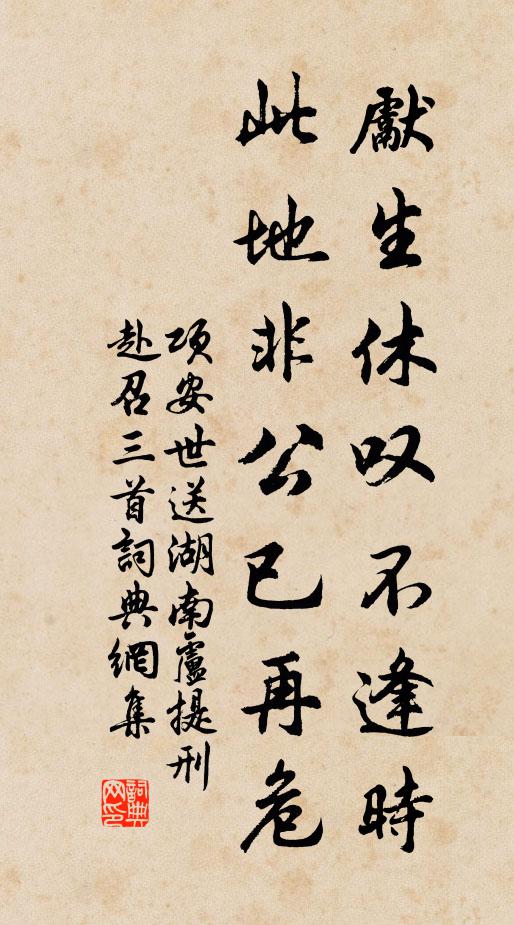 獻生休叹不逢時
此地非公已再危
項安世送湖南盧提刑
赴召三首詞典網集
詞典网印